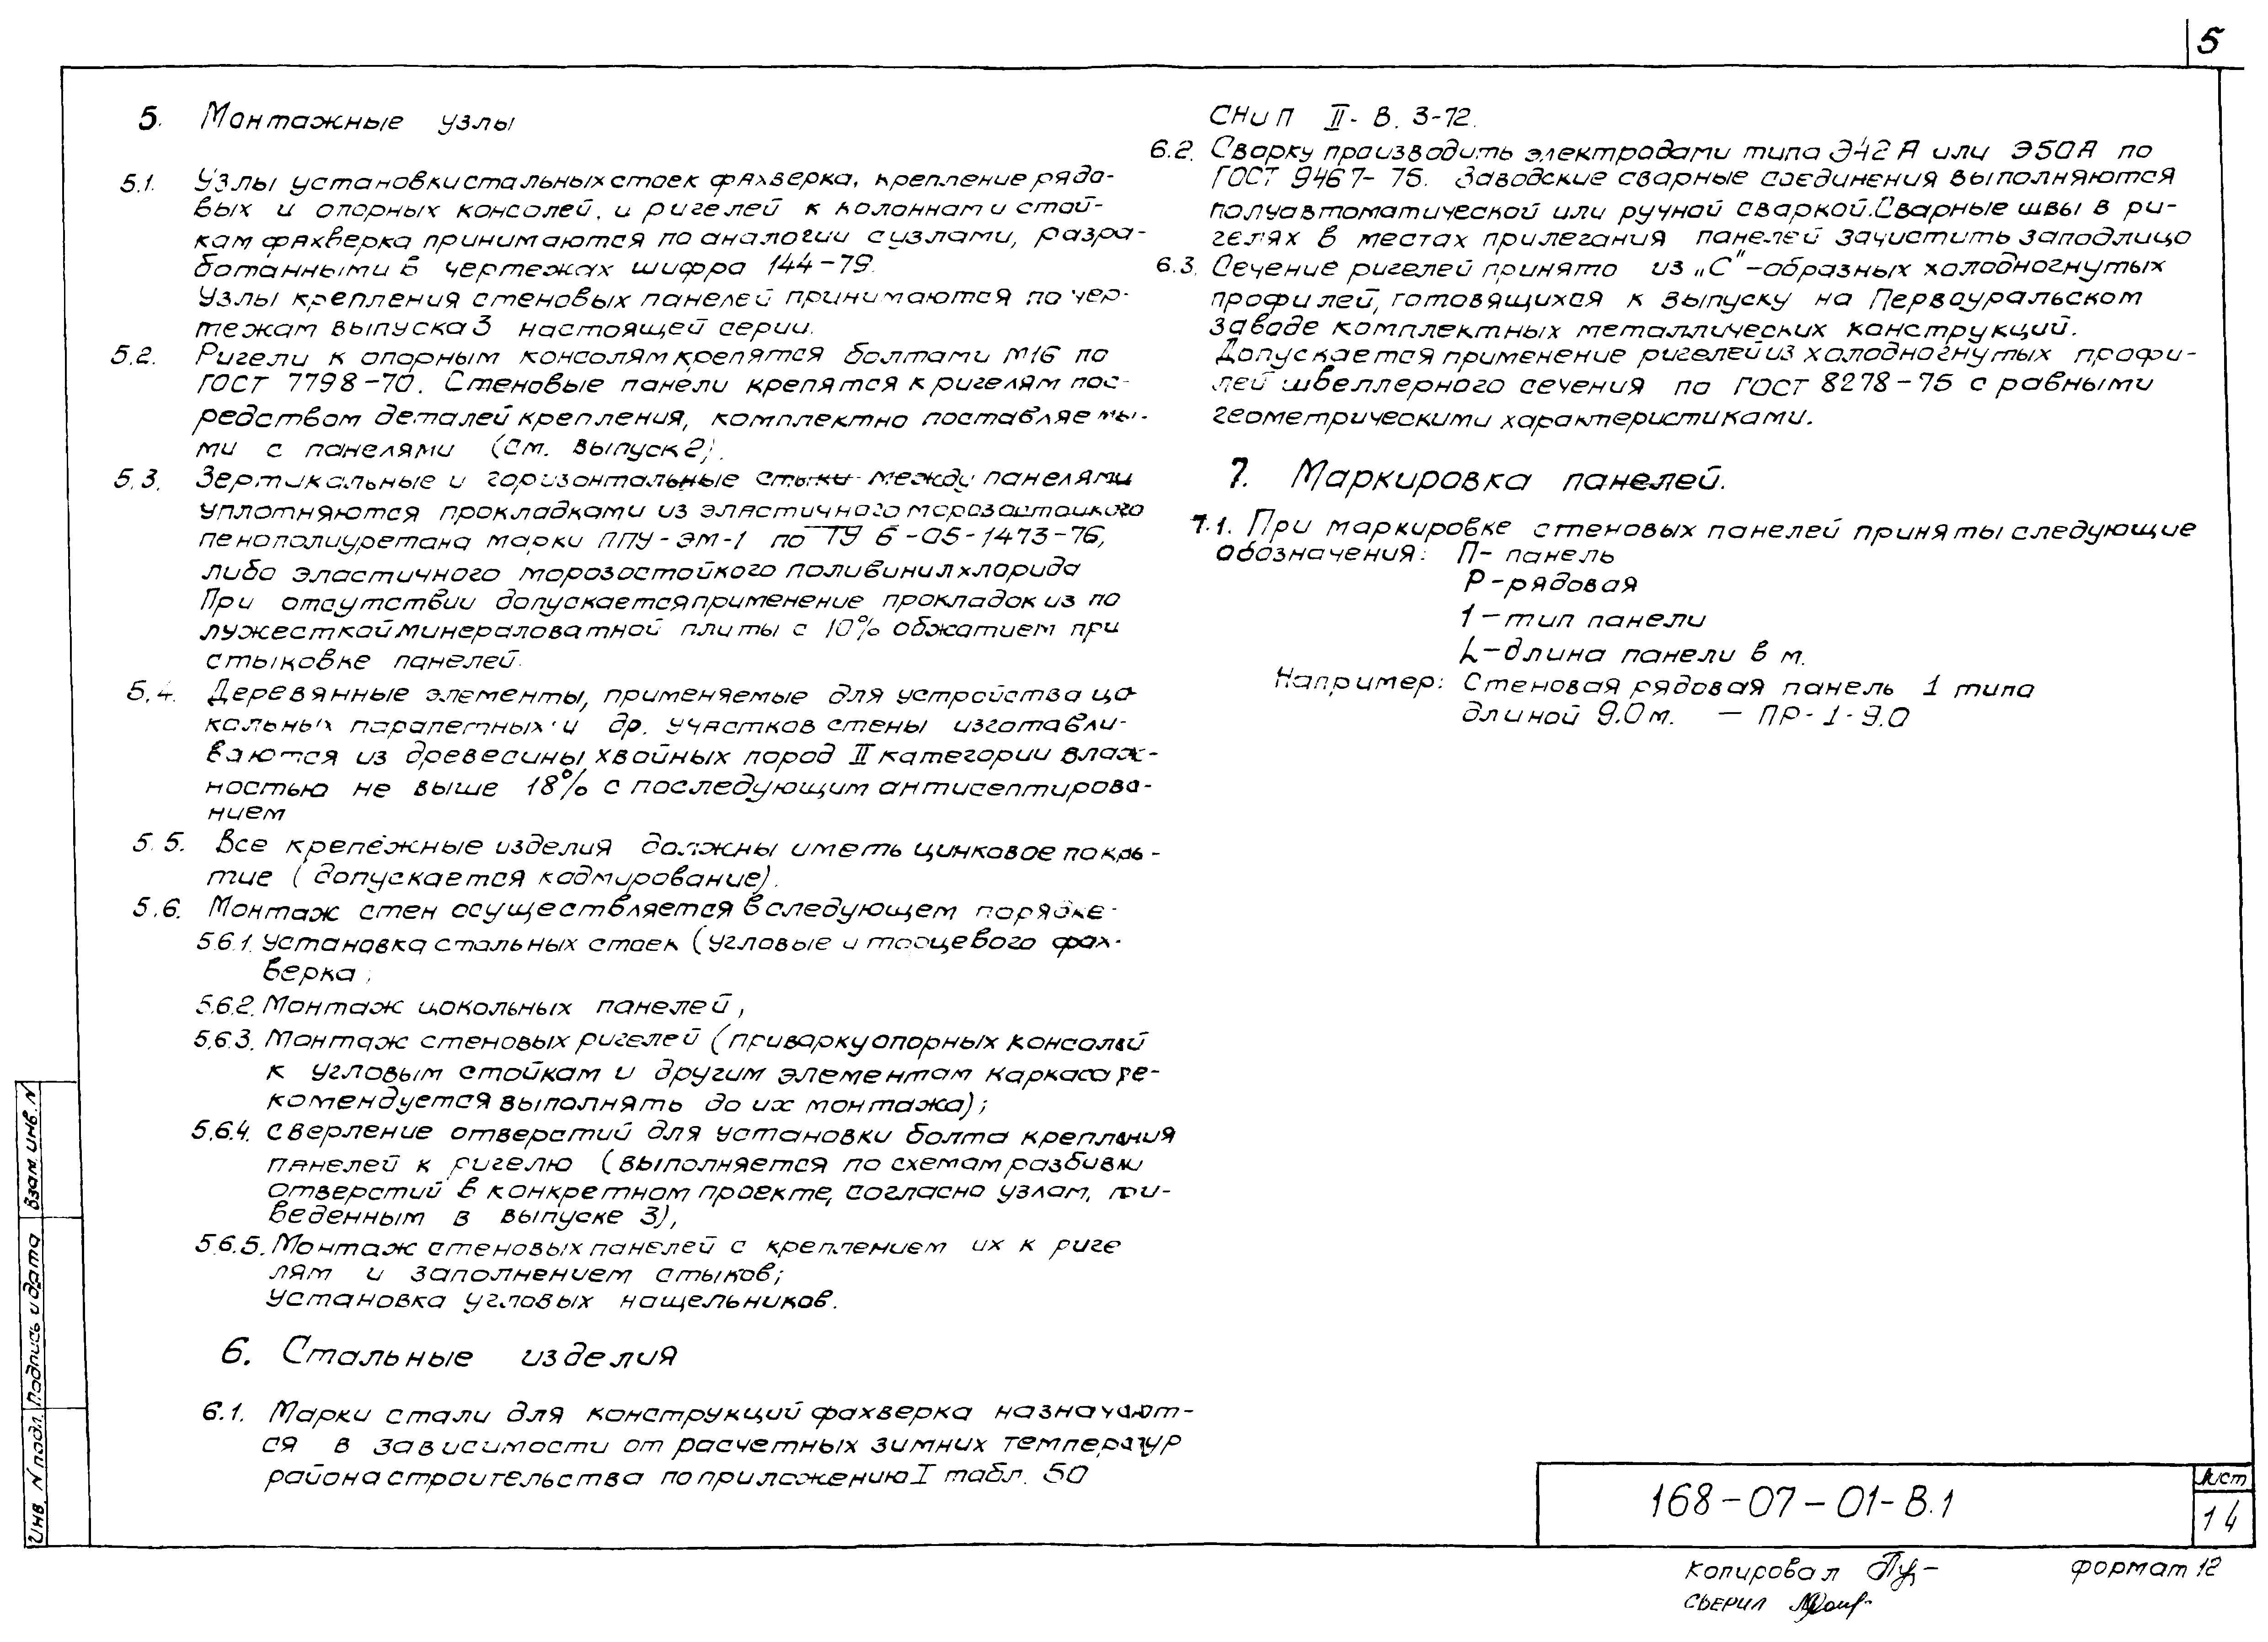 5
5. Монтажные узлы
5.1. Узлы установки стальных стоек фахверка, крепление рядо-
вых и опорных консолей, и ригелей к колоннам и стой-
кам фахверка принимаются по аналогии с узлами, разра-
ботанными в чертежах шифра 144-79.
Узлы крепления стеновых панелей принимаются по чер-
тежам выпуска 3 настоящей серии.
5.2. Ригели к опорным консолям крепятся болтами М16 по
ГОСТ 7798-70. Стеновые панели крепятся к ригелям пос-
редством деталей крепления, комплектно поставляемы-
ми с панелями (см. выпуск 2).
5.3. Вертикальные и горизонтальные стыки между панелями
уплотняются прокладками из эластичного морозостойкого
пенополиуретана марки ППУ-ЭМ-1 по ТУ 6-05-1473-76,
либо эластичного морозостойкого поливинилхлорида
При отсутствии допускается применение прокладок из по
лужесткой минераловатной плиты с 10% обжатием при
стыковке панелей.
5.4. Деревянные элементы, применяемые для устройства цо-
кольных парапетных и др. участков стены изготавли-
ваются из древесины хвойных пород II категории влаж-
ностью не выше 18% с последующим антисептирова-
нием
5.5. Все крепёжные изделия должны иметь цинковое покры-
тие (допускается кадмирование).
5.6. Монтаж стен осуществляется в следующем порядке.
5.6.1. Установка стальных стоек (угловые и торцевого фах-
верка;
5.6.2. Монтаж цокольных панелей,
5.6.3. Монтаж стеновых ригелей (приварку опорных консолей
к угловым стойкам и другим элементам каркаса ре-
комендуется выполнять до их монтажа);
5.6.4. сверление отверстий для установки болта крепления
панелей к ригелю (выполняется по схемам разбивки
отверстий в конкретном проекте, согласно узлам, при-
веденным в выпуске 3),
5.6.5. Монтаж стеновых панелей с креплением их к риге
лям и заполнением стыков;
Установка угловых нащельников.
6. Стальные изделия
6.1. Марки стали для конструкций фахверка назначают-
ся в зависимости от расчетных зимних температур
района строительства по приложению I табл. 50
СНиП II-В.3-72.
6.2. Сварку производить электродами типа Э42А или Э50А по
ГОСТ 9467-75. Заводские сварные соединения выполняются
полуавтоматической или ручной сваркой. Сварные швы в ри-
гелях в местах прилегания панелей зачистить заподлицо
6.3. Сечение ригелей принято из „С"-образных холодногнутых
профилей, готовящихся к выпуску на Первоуральском
заводе комплектных металлических конструкций.
Допускается применение ригелей из холодногнутых профи-
лей швеллерного сечения по ГОСТ 8278-75 с равными
геометрическими характеристиками.
7. Маркировка панелей.
7.1. При маркировке стеновых панелей приняты следующие
обозначения: П- панель
Р-рядовая
1-тип панели
L-длина панели в м.
Например: Стеновая рядовая панель 1 типа
длиной 9.0 м. - ПР-1-9.0
Взам. инв. N
Подпись и дата
Инв. N подл.
168-07-01-В.1
Лист
14
Копировал
формат 12
Сверил